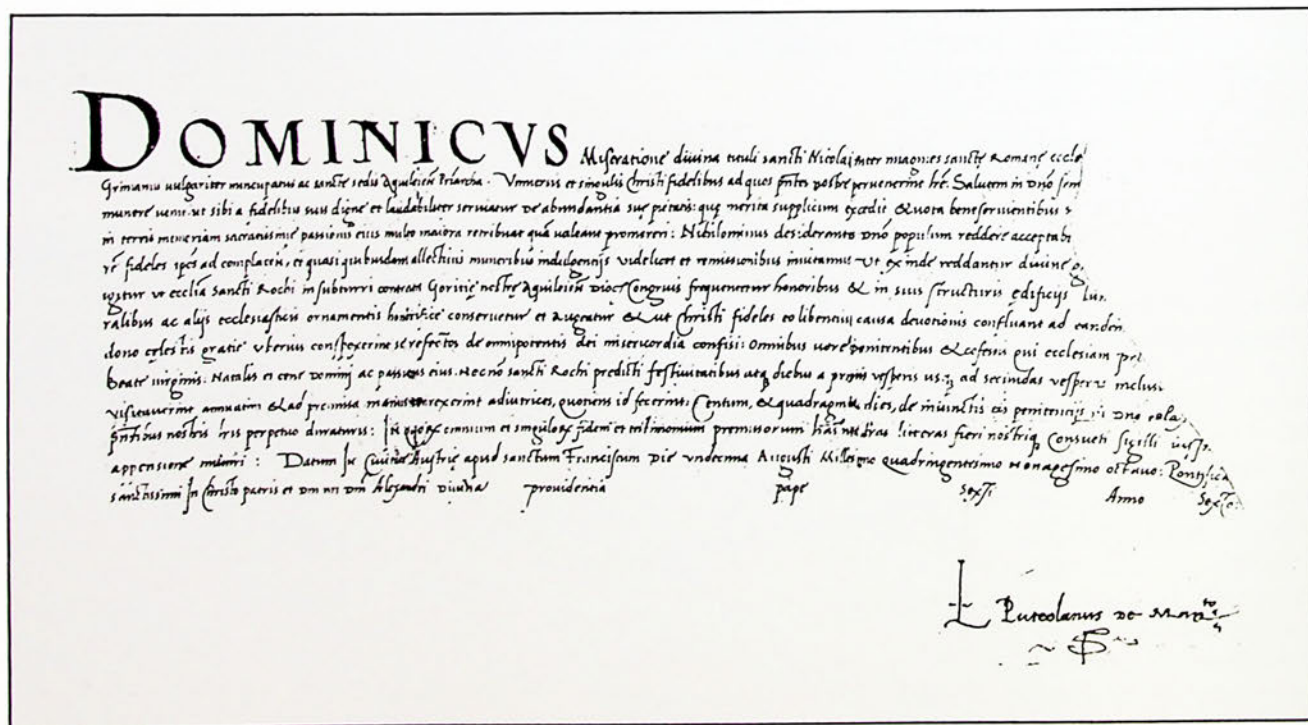 DOMINICVS Miseratione diuina tituli sancti Nicolai inter imagines sanctę Romanę eccle
Grimanus uulgariter nuncupatus ac sanctę sedis Aquileień Priarcha. Vniuersis et singulis Christi fidelibus ad quos pñtes nostrę peruenerint lrę. Salutem in Dño sem
munere uenit ut sibi a fidelibus suis digne et laudabiliter seruiatur de abundantia suę pietatis: quę merita supplicum excedit & uota beneseruientibus
in terris memoriam sacratissimę passionis eius multo maiora retribuat quã ualeant promereri: Nihilominus desiderantes Dño populum reddere acceptabi
fideles ipsos ad complacen, et quasi quibusdam allectiuis muneribus indulgentijs videlicet et remissionibus inuitamus Vt exinde reddantur diuinę
igitur vt ecclia Sancti Rochi in subturri contrata Goritię nostrę Aquileień Dioc Congruis frequentetur honoribus & in suis structuris ędificijs lu
ralibus ac alijs ecclesiasticis ornamentis honorifice conseruetur et augeatur & ut Christi fideles eo libentius causa deuotionis confluant ad eanden
dono cęlestis gratię vberius conspexerint se refectos de omnipotentis dei misericordia confisi: Omnibus uere penitentibus & cōfessis qui ecclesiam
Beatę uirginis. Natalis et cenę Domini ac passionis eius. Necnõ sancti Rochi predicti festiuitatibus atq diebus a primis vesperis usq ad secundas vesperas inclusi
visitauerint annuatim & ad premissa manus porrexerint adiutrices, quotiens id fecerint: Centum, & quadraginta dies, de iniunctis eis penitencijs in Dño rela
pñtibus nostris lris perpetuo duraturis: In quorum omnium et singulorum fidem et testimonium premissorum has nostras literas fieri nostriq Consueti sigilli
appensione muniri: Datum In Ciuitate Austrię apud sanctum Franciscum Die vndecima Augusti Millesimo Quadringentesimo Nonagesimo octauo: Pontifica
sanctissimi In Christo patris et Dni nri Dñi Alexandri Diuina prouidentia papę Sexti Anno Sexto.
L Puteolanus De